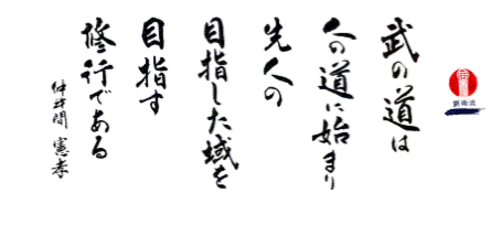 武の道は
人の道に始まり
先人の
目指した域を
目指す
修行である
仲井間 憲孝
劉衛流